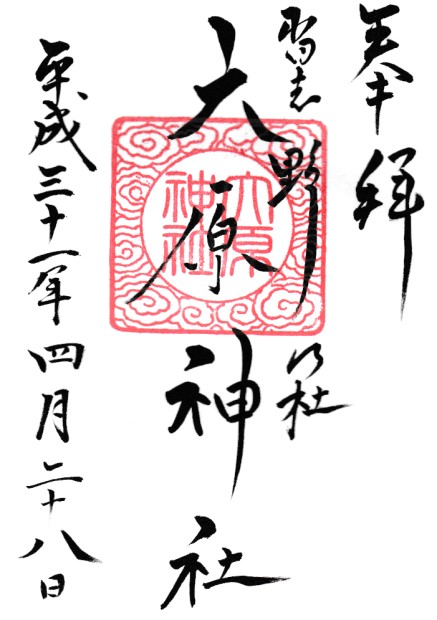 奉拝
習志野乃杜
大原神社
大原
神社
平成三十一年四月二十八日